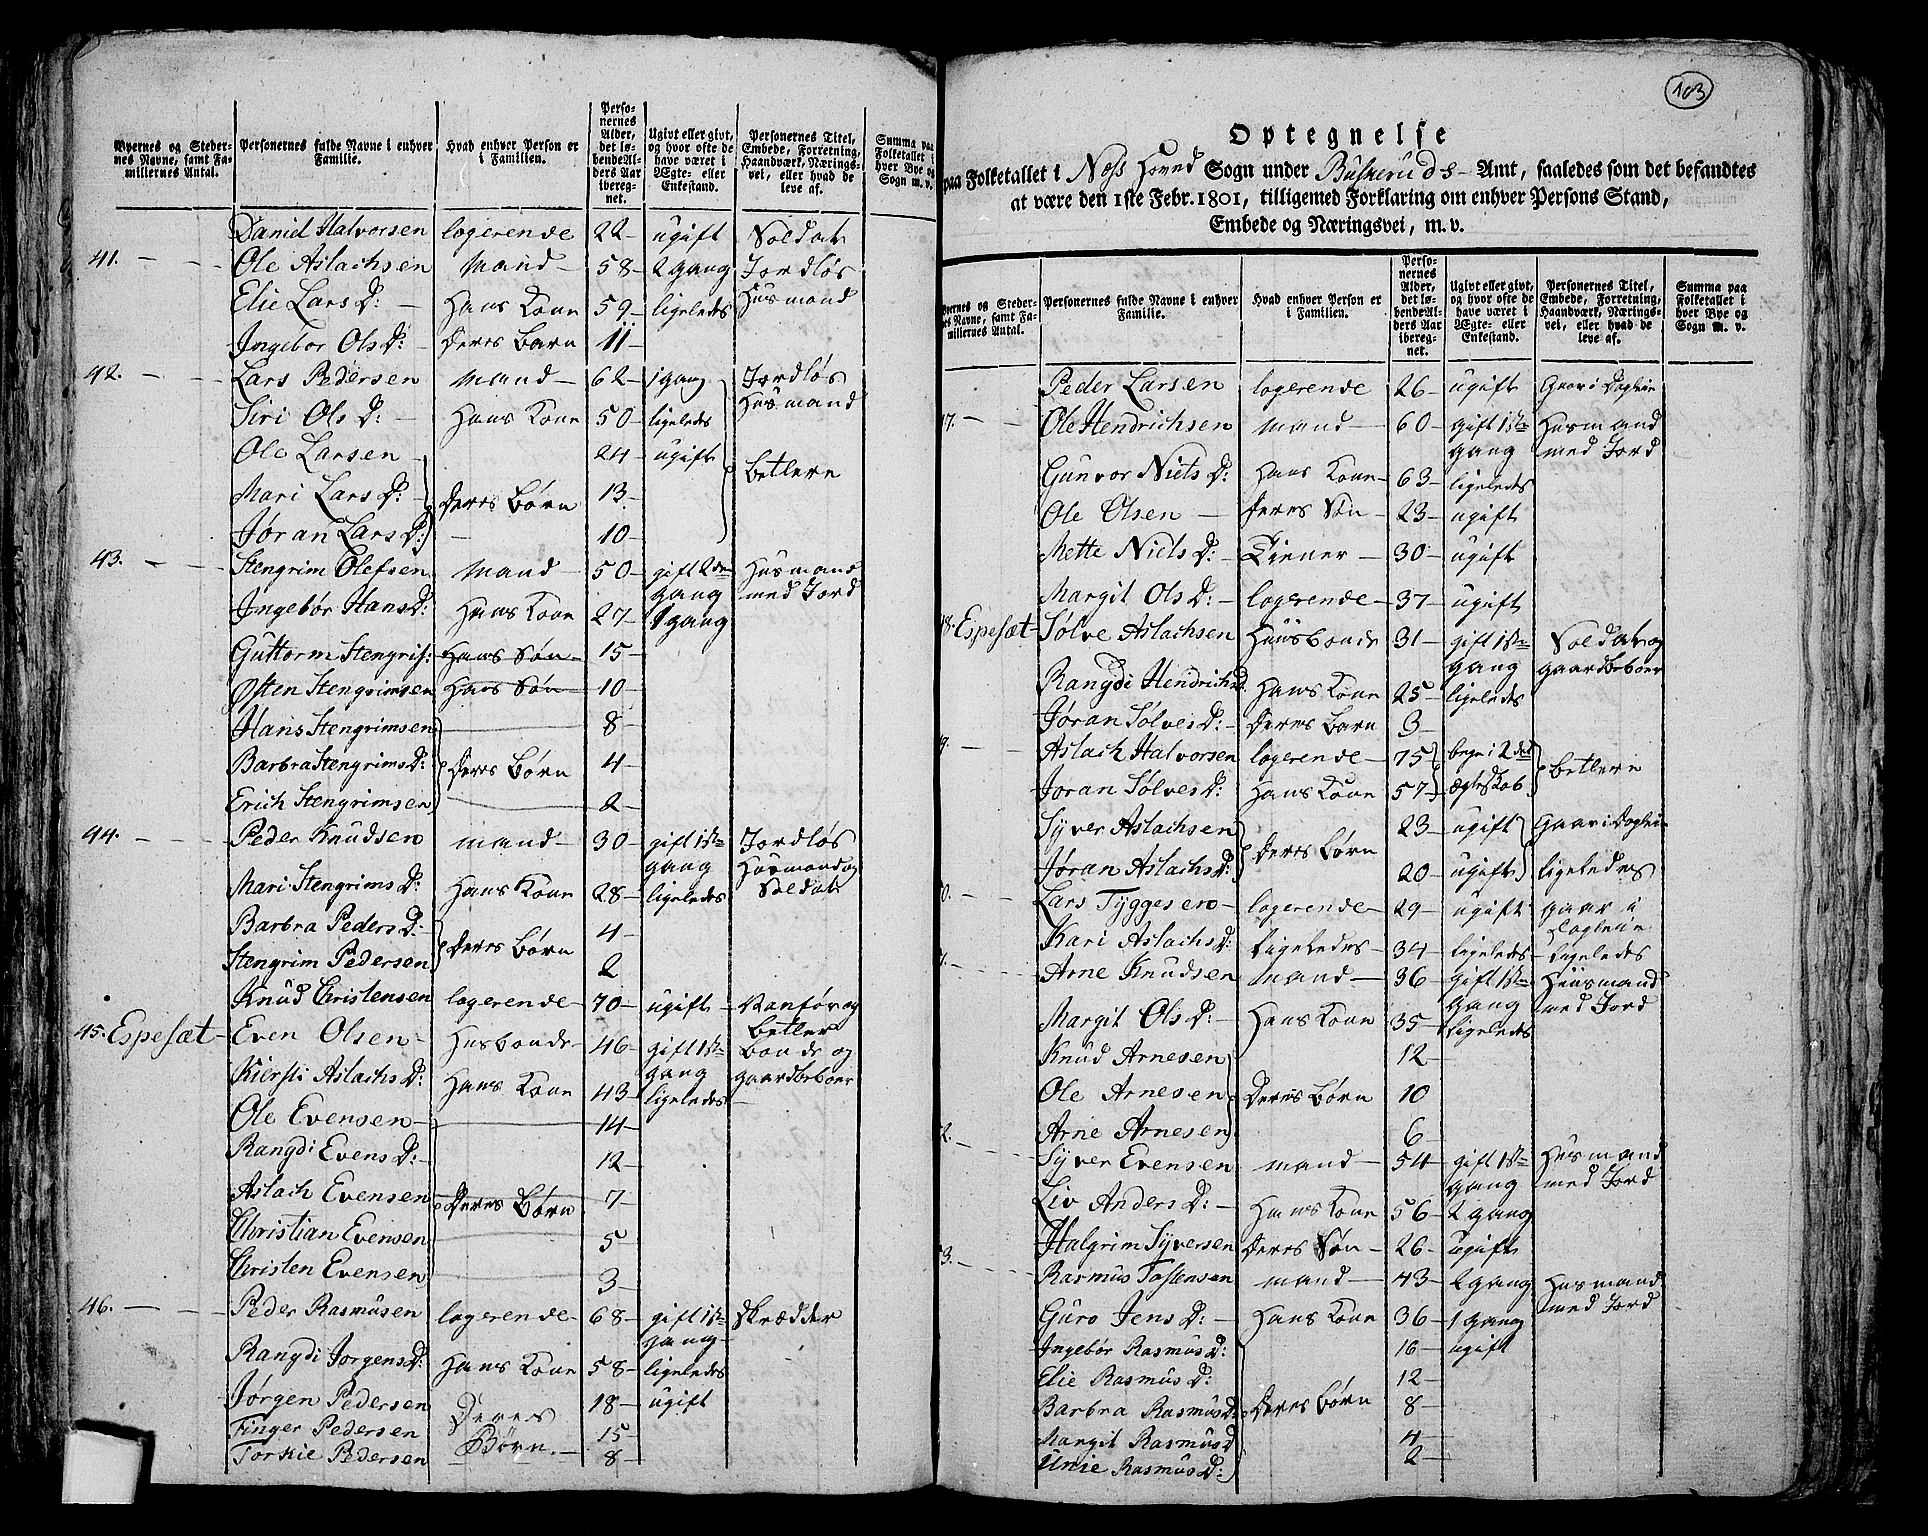 Byernes og Steder-
nes Navne, samt Fa-
milliernes Antal.
Personernes fulde Navne i enhver
Familie.
Hvad enhver Person er
i Familien.
Perso-
nernes
Alder,
det lø-
bende Al-
ders Aar
ibereg-
net.
Ugivt eller givt,
og hvor ofte de
have været i
Ægte- eller
Enkestand.
Personernes Titel,
Embede, Forretning,
Haandværk, Nærings-
vei, eller hvad de
leve af.
Summa paa
Folketallet i
hver Bye og
Sogn m. v.
Daniel Halvorsen logerende 22 ugift Soldat
41. Ole Aslachsen Mand 58 2 gang Jordløs
Elie Lars D: Hans Kone 59 ligeledes Husmand
Ingebor Ols D: Deres Barn 11
42. Lars Pedersen Mand 62 1 gang Jordløs
Siri Ols D: Hans Kone 50 ligeledes Husmand
Ole Larsen 24 ugift
betlere
Mari Lars D: Deres Børn 13
Jøran Lars D: 10
43. Stengrim Olefsen Mand 50 gift 2den Husmand
gang med Jord
Ingebør Hans D: Hans Kone 27 1 gang
Guttorm Stengris: Hans Søn 15
Østen Stengrimsen Hans Søn 10
Hans Stengrimsen 8
Barbra Stengrims D: Deres Børn 4
Erich Stengrimsen 2
44. Peder Knudsen mand 30 gift 1ste Jordløs
gang Husmand og
Mari Stengrims D: Hans Kone 28 ligeledes Soldat
Barbra Peders D: 4
Deres Børn
Stengrim Pedersen 2
Knud Christensen logerende 70 ugift Vanfør og
betler
45. Espesæt Even Olsen Husbonde 46 gift 1ste Bonde og
gang gaardbeboer
Kiersti Aslachs D: Hans Kone 43 ligeledes
Ole Evensen 14
Rangdi Evens D: 12
Aslach Evensen Deres Børn 7
Christian Evensen 5
Christen Evensen 3
46. Peder Rasmusen logerende 68 gift 1ste Skrædder
gang
Rangdi Jorgens D: Hans Kone 58 ligeledes
Jørgen Pedersen 18 ugift
Deres
Finger Pedersen 15
Børn.
Torkie Pedersen 8
103
Optegnelse
paa Folketallet i Næss Hoved Sogn under Buskeruds Amt, saaledes som det befandtes
at være den 1ste Febr. 1801, tilligemed Forklaring om enhver Persons Stand,
Embede og Næringsvei, m. v.
Byernes og Steder-
nes Navne, samt Fa-
milliernes Antal.
Personernes fulde Navne i enhver
Familie.
Hvad enhver Person er
i Familien.
Perso-
nernes
Alder,
det lø-
bende Al-
ders Aar
ibereg-
net.
Ugivt eller givt,
og hvor ofte de
have været i
Ægte- eller
Enkestand.
Personernes Titel,
Embede, Forretning,
Haandværk, Nærings-
vei, eller hvad de
leve af.
Summa paa
Folketallet i
hver Bye og
Sogn m. v.
Peder Larsen logerende 26 ugift Gaar i Dagleie
7. Ole Hendrichsen mand 60 gift 1ste Husmand
gang med Jord
Gunvor Niels D: Hans Kone 63 ligeledes
Ole Olsen Deres Søn 23 ugift
Mette Niels D: Tiener 30 ugift
Margit Ols D: logerende 37 ugift
8. Espesæt Sølve Aslachsen Huusbonde 31 gift 1ste Soldat og
gang gaardbeboer
Rangdi Hendrichs D. Hans Kone 25 ligeledes
Jøran Sølves D: Deres Barn 3
9. Aslach Halvorsen logerende 75 begge i 2det
betlere
Joran Sølves D: Hans Kone 57 Ægteskab
Syver Aslachsen 23 ugift Gaar i Dagleie
Deres Børn
Jøran Aslachs D: 20 ugift ligeledes
0. Lars Tyggesen logerende 29 ugift gaar i
Dagleie
Kari Aslachs D: ligeledes 34 ligeledes ligeledes
1. Arne Knudsen mand 36 gift 1ste Huusmand
gang med Jord
Margit Ols D: Hans Kone 35 ligeledes
Knud Arnesen 12
Ole Arnesen Deres Børn 10
Arne Arnesen 6
2. Syver Evensen mand 54 gift 1ste Husmand
gang med Jord
Liv Anders D: Hans Kone 56 2 gang
Halgrim Syversen Deres Søn 26 ugift
3. Rasmus Tostensen mand 43 2 gang Husmand
med Jord
Guro Jens D: Hans Kone 36 1 gang
Ingebør Rasmus D: 16 ugift
Elie Rasmus D: 12
Barbra Rasmus D: Deres Børn 8
Margit Rasmus D 4
Unie Rasmus D: 2